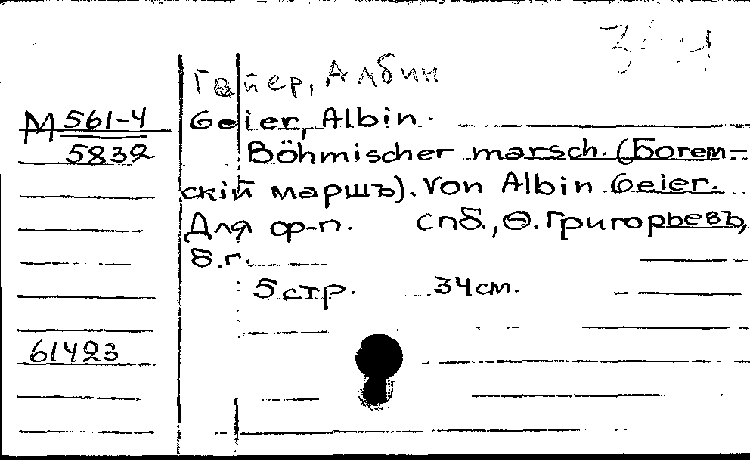 Гайер, Албин
М 561-4
5832
Geier, Albin.
Böhmischer marsch. (Богем-
скій маршъ). Von Albin Geier.
Для ф-п. Спб., Ѳ. Григорьевъ,
б.г.
5 стр. 34 см.
61423